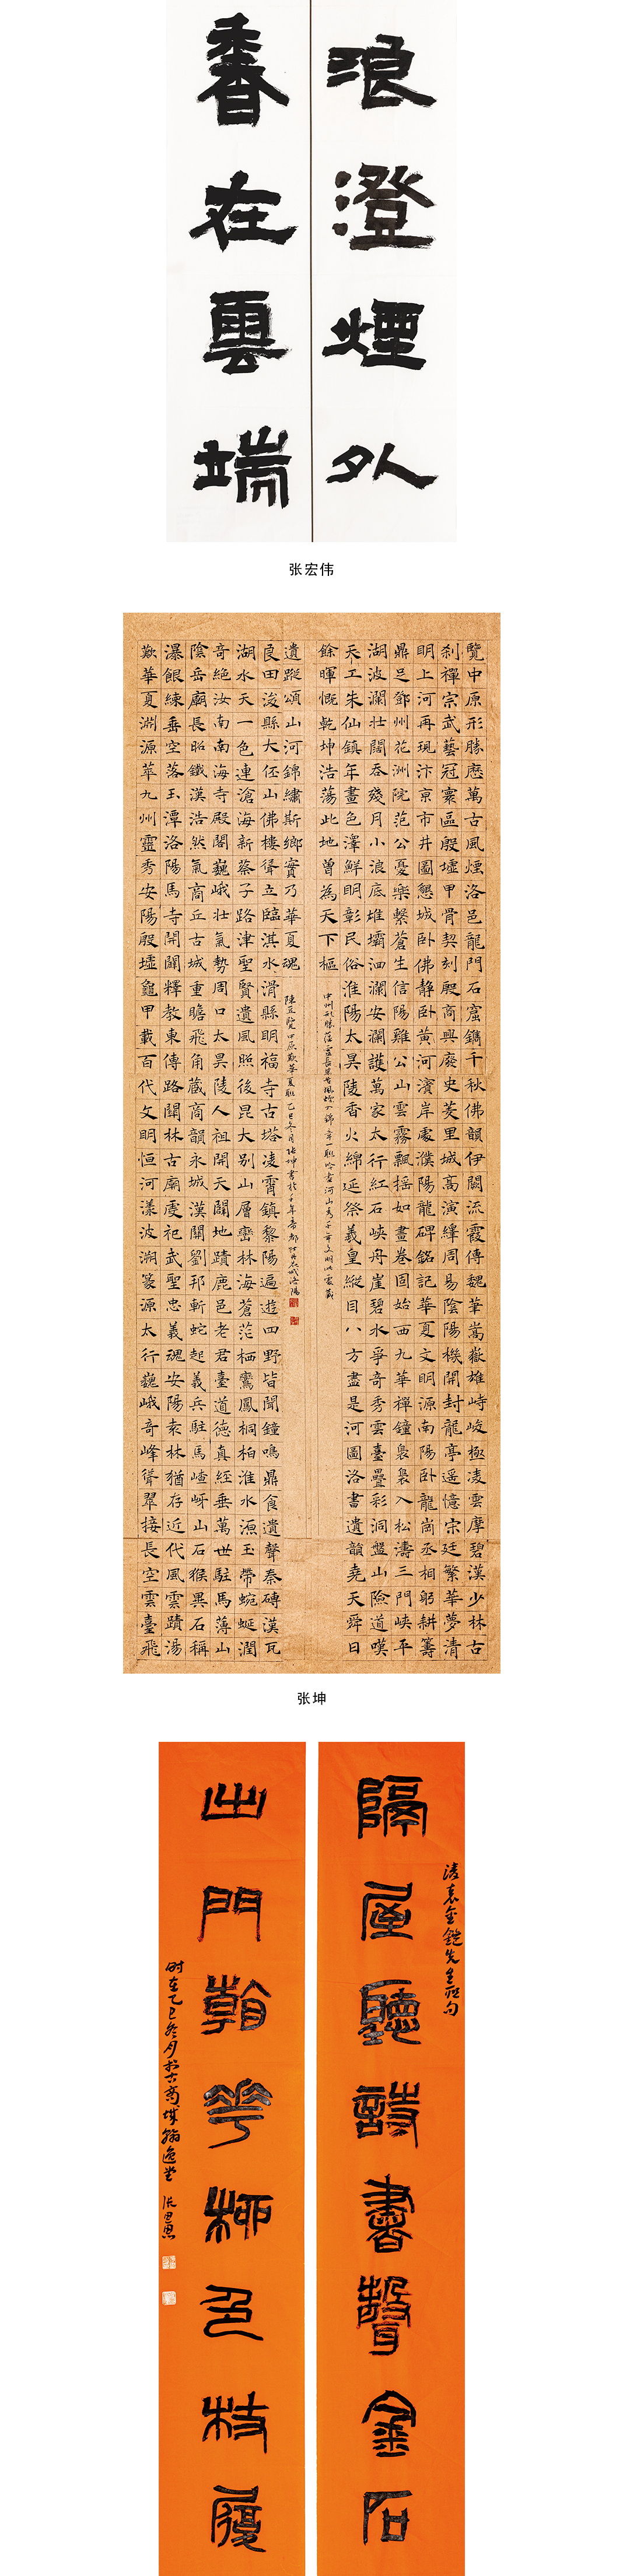 浪澄煙外
香在雲端
张宏伟
覽中原形勝歷萬古風煙洛邑龍門石窟鐫千秋佛韻伊闕流霞傳魏華嵩嶽雄峙峻極凌雲摩碧漢少林古
刹禪宗武藝冠寰區殷墟甲骨契刻殷商興廢史羑里城高演繹周易陰陽機開封龍亭遥憶宋廷繁華夢清
明上河再現汴京市井圖懸城卧佛静卧黄河濱岸處濮陽龍碑銘記華夏文明源南陽卧龍崗丞相躬耕籌
鼎足鄧州花洲院范公憂樂繫蒼生信陽雞公山雲霧飄摇如畫卷固始西九華禪鐘裊裊入松濤三門峽平
湖波瀾壯闊吞殘月小浪底堆壩洄瀾安瀾護萬家太行紅石峽丹崖碧水爭奇秀雲臺疊彩洞盤山險道嘆
天工朱仙鎮年畫色澤鮮明彰民俗淮陽太昊陵香火綿延祭羲皇縱目八方盡是河圖洛書遺韻堯天舜日
餘暉慨乾坤浩蕩此地曾為天下樞
歎華夏淵源萃九州靈秀安陽殷墟龜甲載百代文明恒河漾波溯篆源太行巍峨奇峰聳翠接長空雲臺飛
瀑銀練垂空落玉潭洛陽馬寺開闢釋教東傳路關林古廟虔祀武聖忠義魂安陽袁林猶存近代風雲蹟湯
陰岳廟長昭鐵漢浩然氣商丘古城重瞻飛角藏商韻永城漢關劉邦斬蛇起義兵駐馬嵖岈山石猴異石稱
奇絶汝南南海寺殿閣巍峨壯氣勢周口太昊陵人祖開天闢地蹟鹿邑老君臺道德真經垂萬世駐馬薄山
湖水天一色連滄海新蔡子路津聖賢遺風照後昆大别山層巒林海蒼茫栖鸞鳳桐柏淮水源玉帶蜿蜒潤
良田浚縣大伾山佛樓聳立臨淇水滑縣明福寺古塔凌霄鎮黎陽遍遊四野皆聞鐘鳴鼎食遺聲秦磚漢瓦
遺蹤頌山河錦繡斯鄉實乃華夏魂
覽中原歎華夏聯乙巳冬月張坤書於千年帝都牡丹花城洛陽
张坤
隔屋聽詩書聲金石
出門看花柳色杖履
時在乙巳冬月於古商城翰逸堂